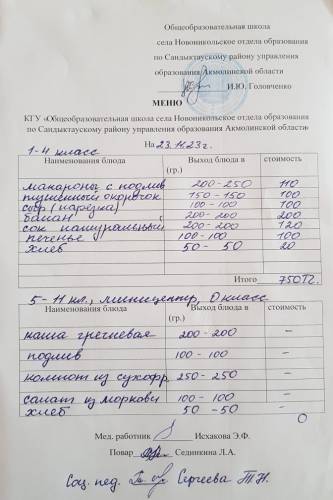 Общеобразовательная школа
села Новоникольское отдела образования
по Сандыктаускому району управления
образования Акмолинской области
И.Ю. Головченко
МЕНЮ
КГУ «Общеобразовательная школа села Новоникольское отдела образования
по Сандыктаускому району управления образования Акмолинской области»
На 23.11.23г.
1-4 класс
Наименования блюда Выход блюда в (гр.) стоимость
макароны с подлив 200-250 110
тушённый окорочок 150-150 100
сыр (нарезка) 100-100 100
банан 200-200 200
сок натуральный 200-200 120
печенье 100-100 100
хлеб 50-50 20
Итого 750тг.
5-11 кл., миницентр, 0 класс
Наименования блюда Выход блюда в (гр.) стоимость
каша гречневая 200-200 -
подлив 100-100 -
компот из сухофр 250-250 -
салат из моркови 100-100 -
хлеб 50-50 -
Мед. работник Исхакова Э.Ф.
Повар Сединкина Л.А.
Соц. пед. Сергеева Т.Н.